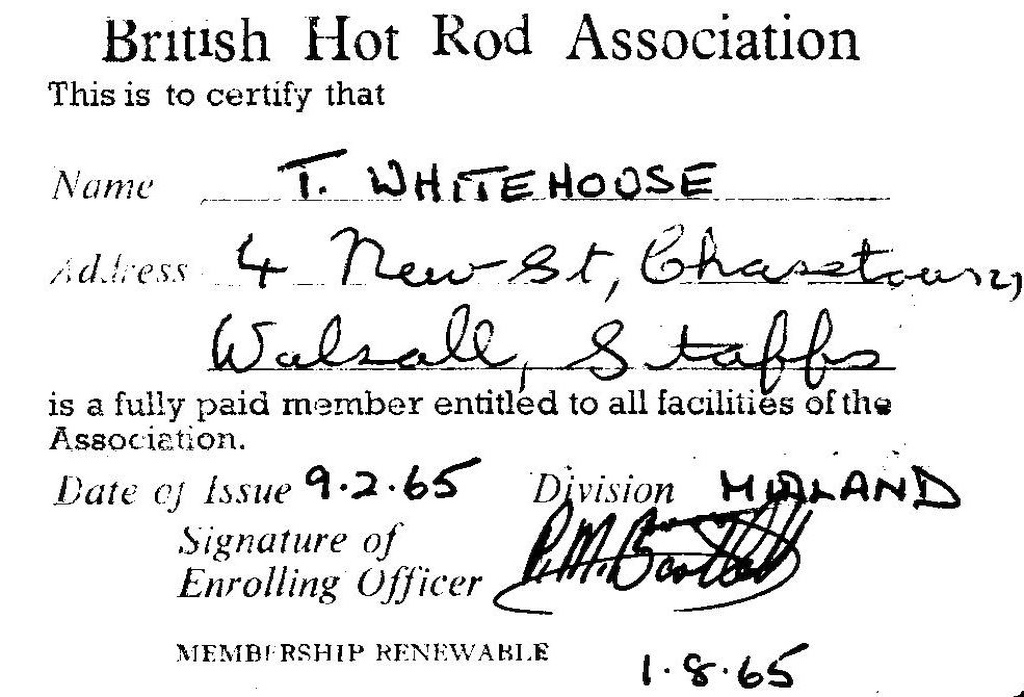 British Hot Rod Association
This is to certify that
Name T. WHITEHOUSE
Address 4 New St, Chasetown,
Walsall, Staffs
is a fully paid member entitled to all facilities of the
Association.
Date of Issue 9.2.65 Division MIDLAND
Signature of
Enrolling Officer P.M. Bartlett
MEMBERSHIP RENEWABLE 1.8.65